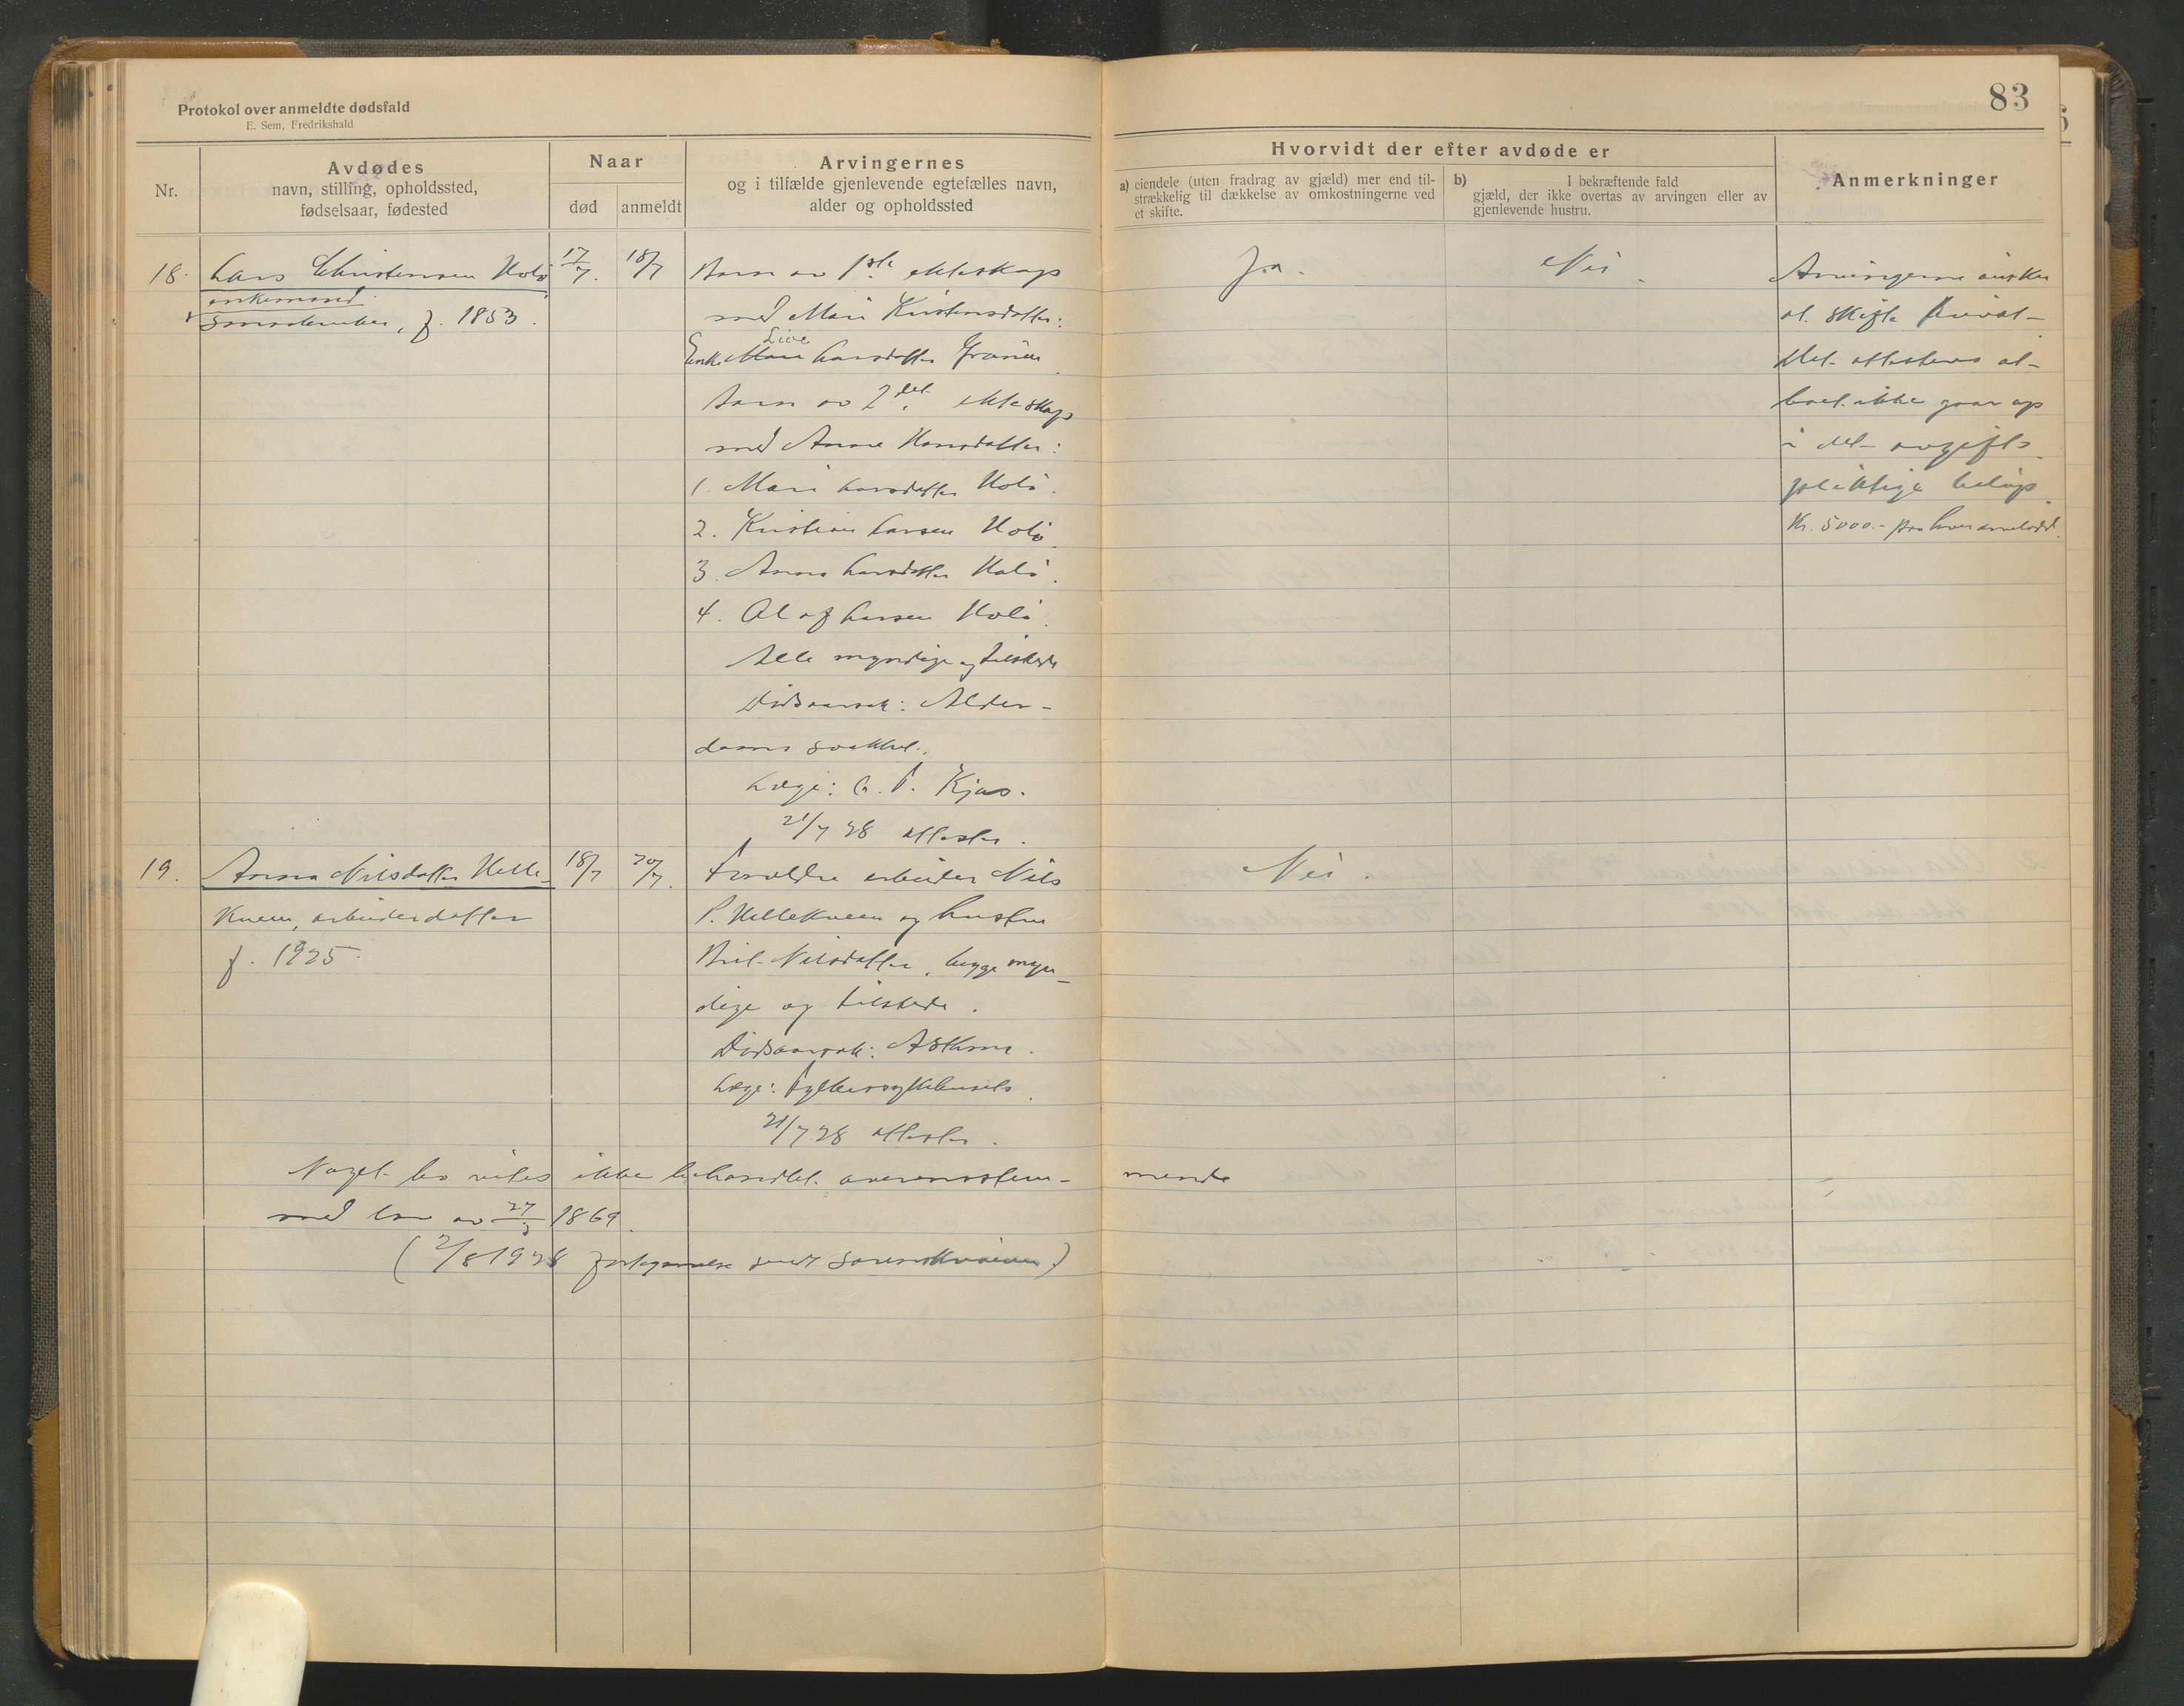 Protokol over anmeldte dødsfald
E. Sem, Fredrikshald
83
Nr.
Avdødes
navn, stilling, opholdssted,
fødselsaar, fødested
Naar
død
anmeldt
Arvingernes
og i tilfælde gjenlevende egtefælles navn,
alder og opholdssted
Hvorvidt der efter avdøde er
a) eiendele (uten fradrag av gjæld) mer end til-
strækkelig til dækkelse av omkostningerne ved
et skifte.
b) I bekræftende fald
gjæld, der ikke overtas av arvingen eller av
gjenlevende hustru.
Anmerkninger
18. Lars Christensen Holø
enkemand
f. 1853.
17/7. 18/7
Barn av 1ste ekteskap
med Mari Kristensdatter:
Enke Live Larsdatter
Barn av 2det ekteskap
med Anne Hansdatter:
1. Mari Larsdatter Holø.
2. Kristian Larsen Holø.
3. Anna Larsdatter Holø.
4. Olaf Larsen Holø.
Alle myndige og tilstede
Dødsaarsak: Alder-
doms svakhet.
Læge: Kjos.
21/7 28 attester.
Ja.
Nei
Arvingerne ønsker
at skifte privat
Det attesteres at
boet ikke gaar op
i det avgifts
pliktige beløp
Kr. 5000.- paa hver arvelodd.
19. Anna Nilsdatter Helle-
kveen, arbeiderdatter
f. 1925.
18/7 20/7.
Forældre arbeider Nils
P. Hellekveen og hustru
Brit Nilsdatter, begge myn-
dige og tilstede.
Dødsaarsak: Asthma.
Læge: Fylkessykehusets
21/7 28 attester.
Nei.
Noget bo vites ikke behandlet overensstem-
mende
med lov av 27/3 1869.
(2/8 1928 fortegnelse sendt sorenskriveren)